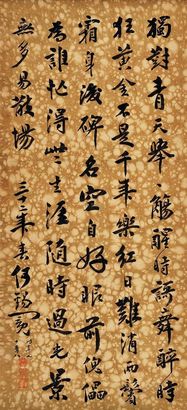 獨對青天舉一觴醒時歌舞醉時
狂黃金不是千年樂紅日難消兩鬢
霜身後碑名空自好眼前傀儡
為誰忙得生涯隨時過光景
無多易散場 年春何錫